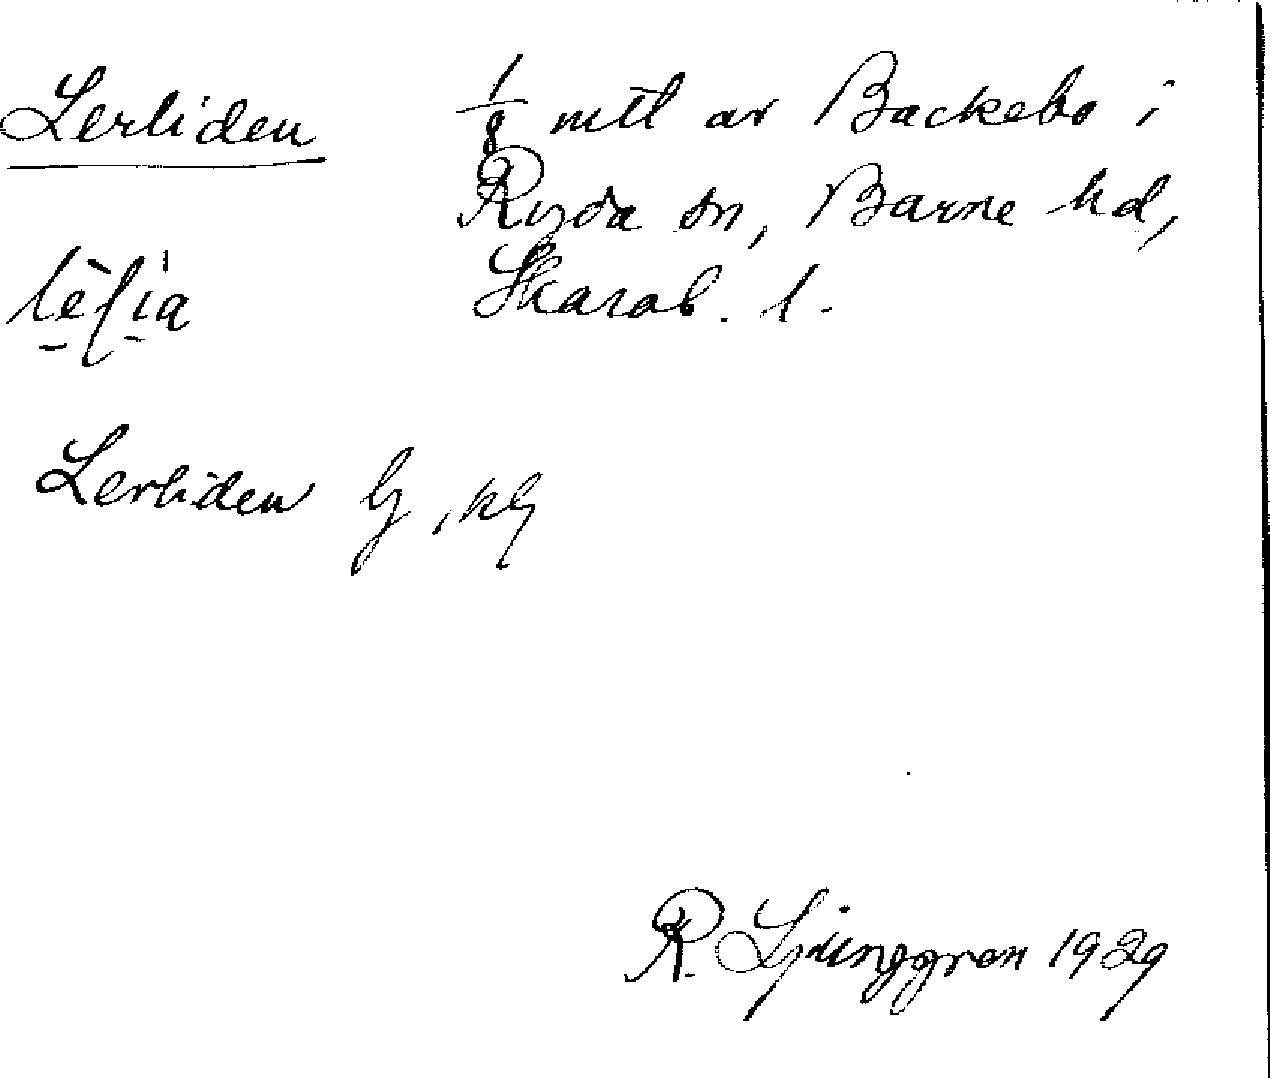 Lerliden 1/8 mtl av Backebo i
Ryda sn, Barne hd,
Skarab. l.
Lerliden G, kG
R. Ljunggren 1929